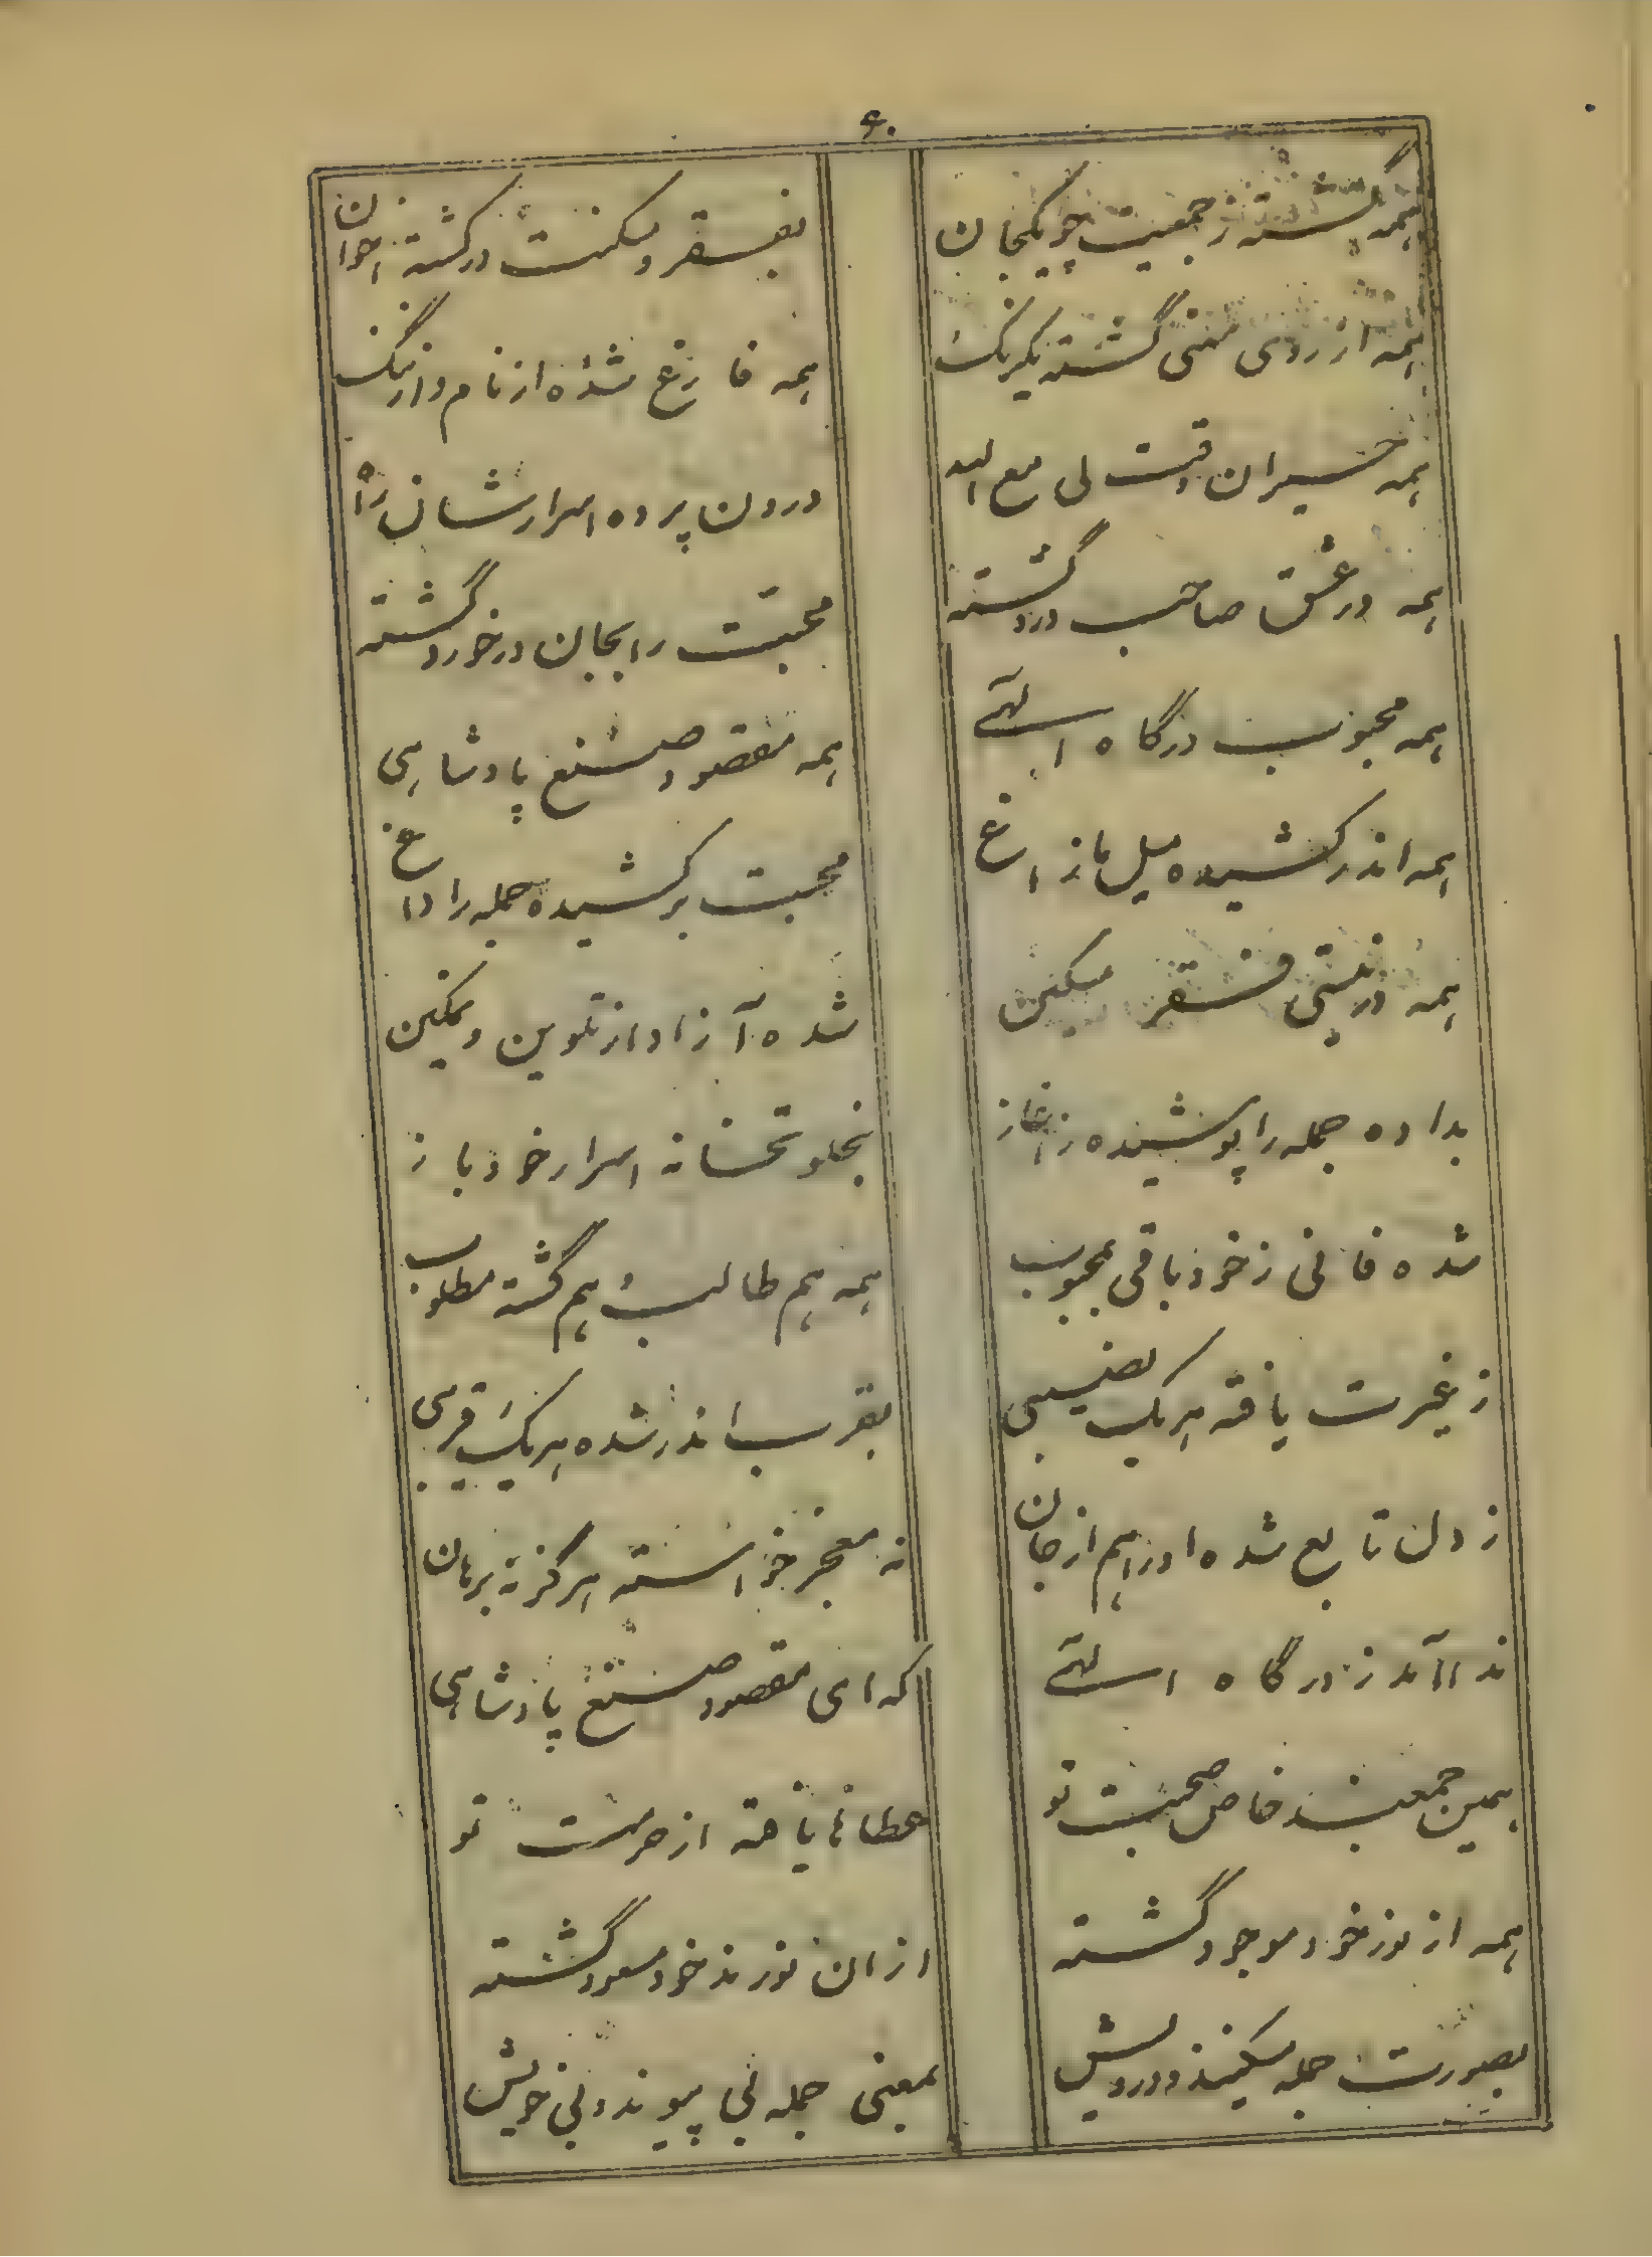 ۶۰
همه گشته ز جمعیت چو یکجان
بفقر و مسکنت در گشته اخوان
همه از روی معنی گشته یکرنگ
همه فارغ شده از نام و از ننگ
همه حیران وقت لی مع الله
درون پرده اسرارشان راه
همه در عشق صاحب درد گشته
محبت را بجان در خورد گشته
همه محبوب درگاه الهی
همه مقصود صنع پادشاهی
همه اندر کشیده میل مازاغ
محبت برکشیده جمله را داغ
همه در نیستی فقر مسکین
شده آزاد از تلوین و تمکین
بداده جمله را پوشیده ز آغاز
بخلوتخانه اسرار خود باز
شده فانی ز خود باقی بمحبوب
همه هم طالب هم گشته مطلوب
ز غیرت یافته هر یک نصیبی
بقرب اندر شده هر یک قریبی
ز دل تابع شده او را هم از جان
نه معجز خواسته هرگز نه برهان
ندا آمد ز درگاه الهی
که ای مقصود صنع پادشاهی
همین جمعند خاص صحبت تو
عطاها یافته از حرمت تو
همه از نور خود موجود گشته
از ان نورند خود مسعود گشته
بصورت جمله مسکینند و درویش
بمعنی جمله بی پیوند و بی خویش